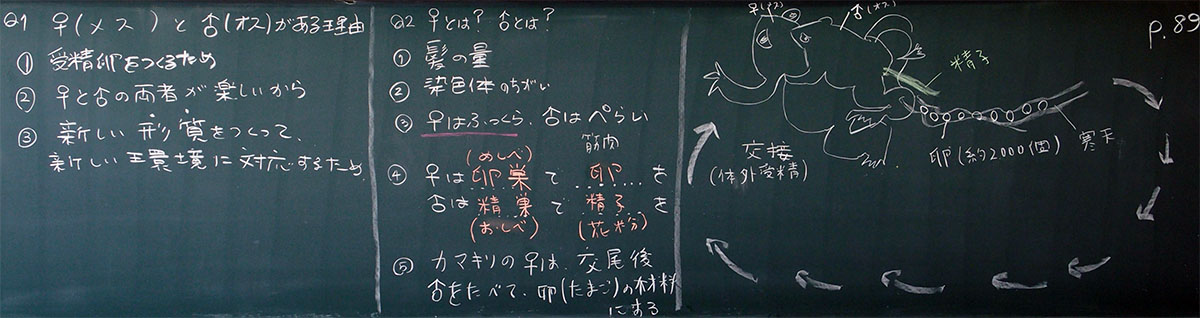 Q1 ♀(メス)と♂(オス)がある理由
① 受精卵をつくるため
② ♀と♂の両者が楽しいから
③ 新しい形質をつくって、
新しい環境に対応するため
Q2 ♀とは? ♂とは?
① 髪の量
② 染色体のちがい
③ ♀はふっくら、♂はぺらい
筋肉
(めしべ)
④ ♀は卵巣で卵を
♂は精巣で精子を
(おしべ) (花粉)
⑤ カマキリの♀は、交尾後
♂をたべて、卵(たまご)の材料
にする
♀(メス)
♂(オス)
P.89
精子
卵(約2000個)
寒天
交接
(体外受精)